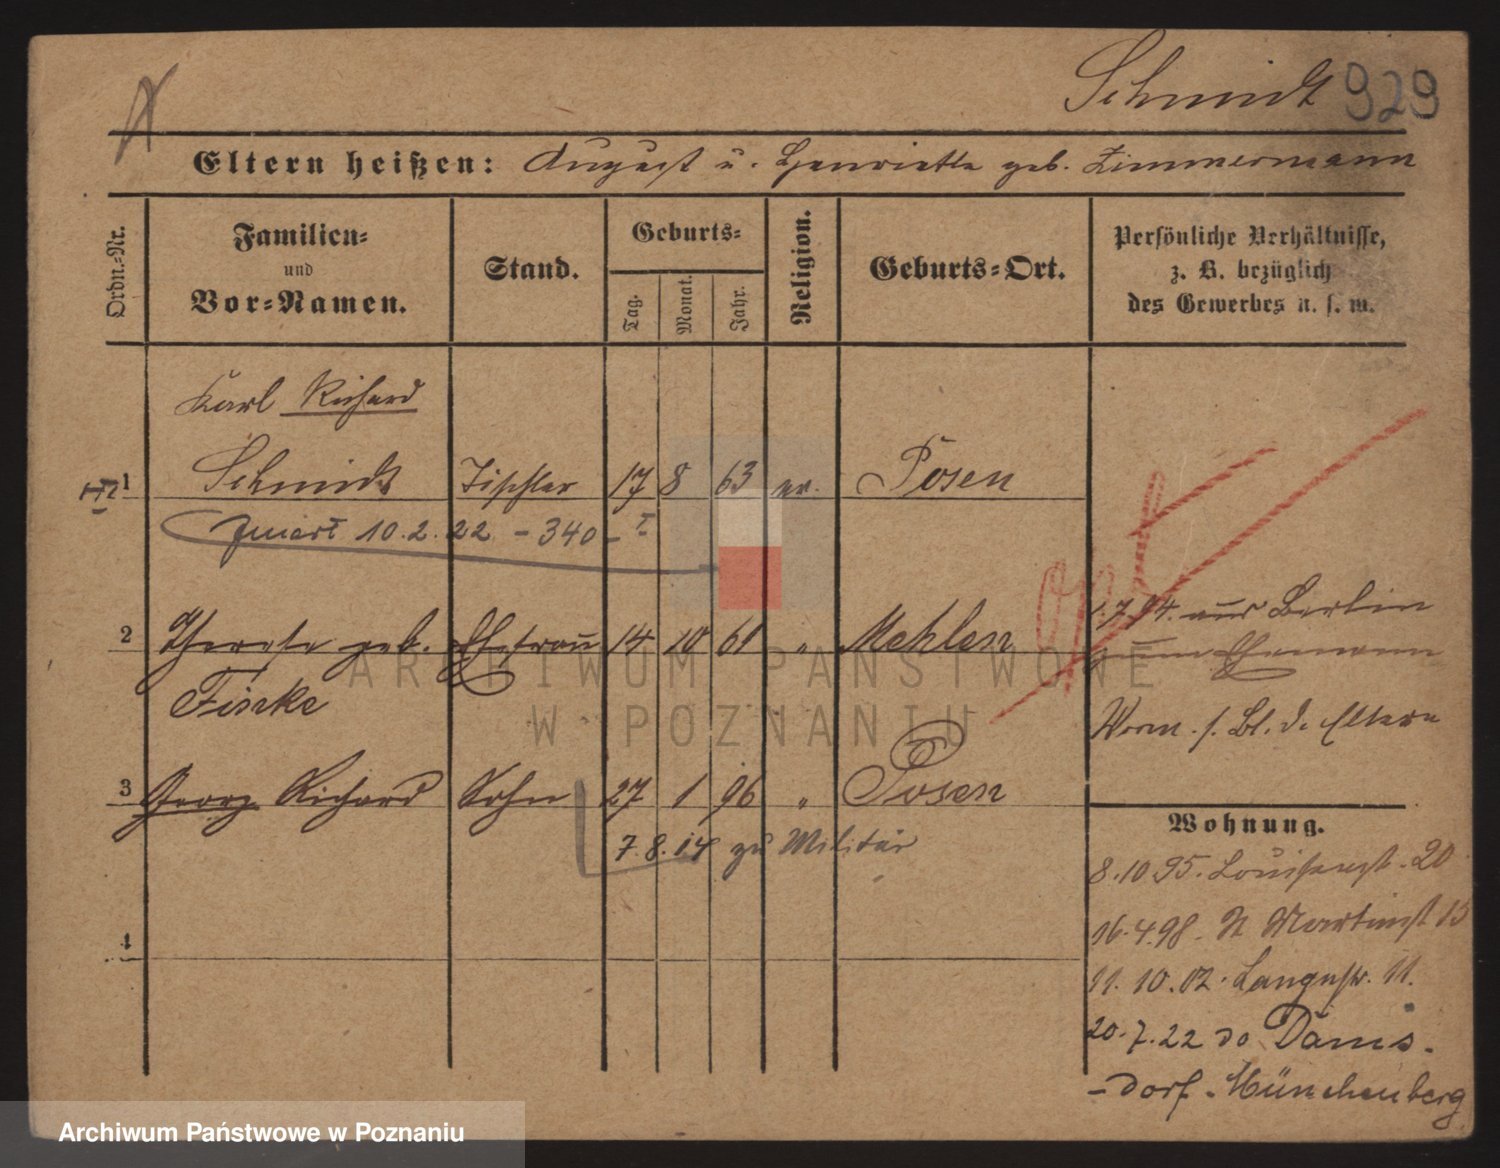 Schmidt 929
Eltern heißen: August u. Henriette geb. Zimmermann
Ordn.-Nr.
Familien-
und
Vor-Namen.
Stand.
Geburts-
Tag.
Monat.
Jahr.
Religion.
Geburts-Ort.
Persönliche Verhältnisse,
z. B. bezüglich
des Gewerbes u. s. w.
Karl Richard
1 Schmidt Tischler 17 8 63 ev. Posen
10.2.22 - 340 -
2 Therese geb. Ehefrau 14 10 61 " Mehlen
Fiscke
1.7.94. aus Berlin
zum Ehemann
Worm. s. Bl. d. Eltern
3 Georg Richard Sohn 27 1 96 " Posen
7.8.14 zu Militär
4
Wohnung.
8.10.95. Louisenst. 20
16.4.98. St Martinst 13
11.10.02. Langestr. 11.
20.7.22 do Dams-
-dorf. Müncheberg
ARCHIWUM PAŃSTWOWE
W POZNANIU
Archiwum Państwowe w Poznaniu